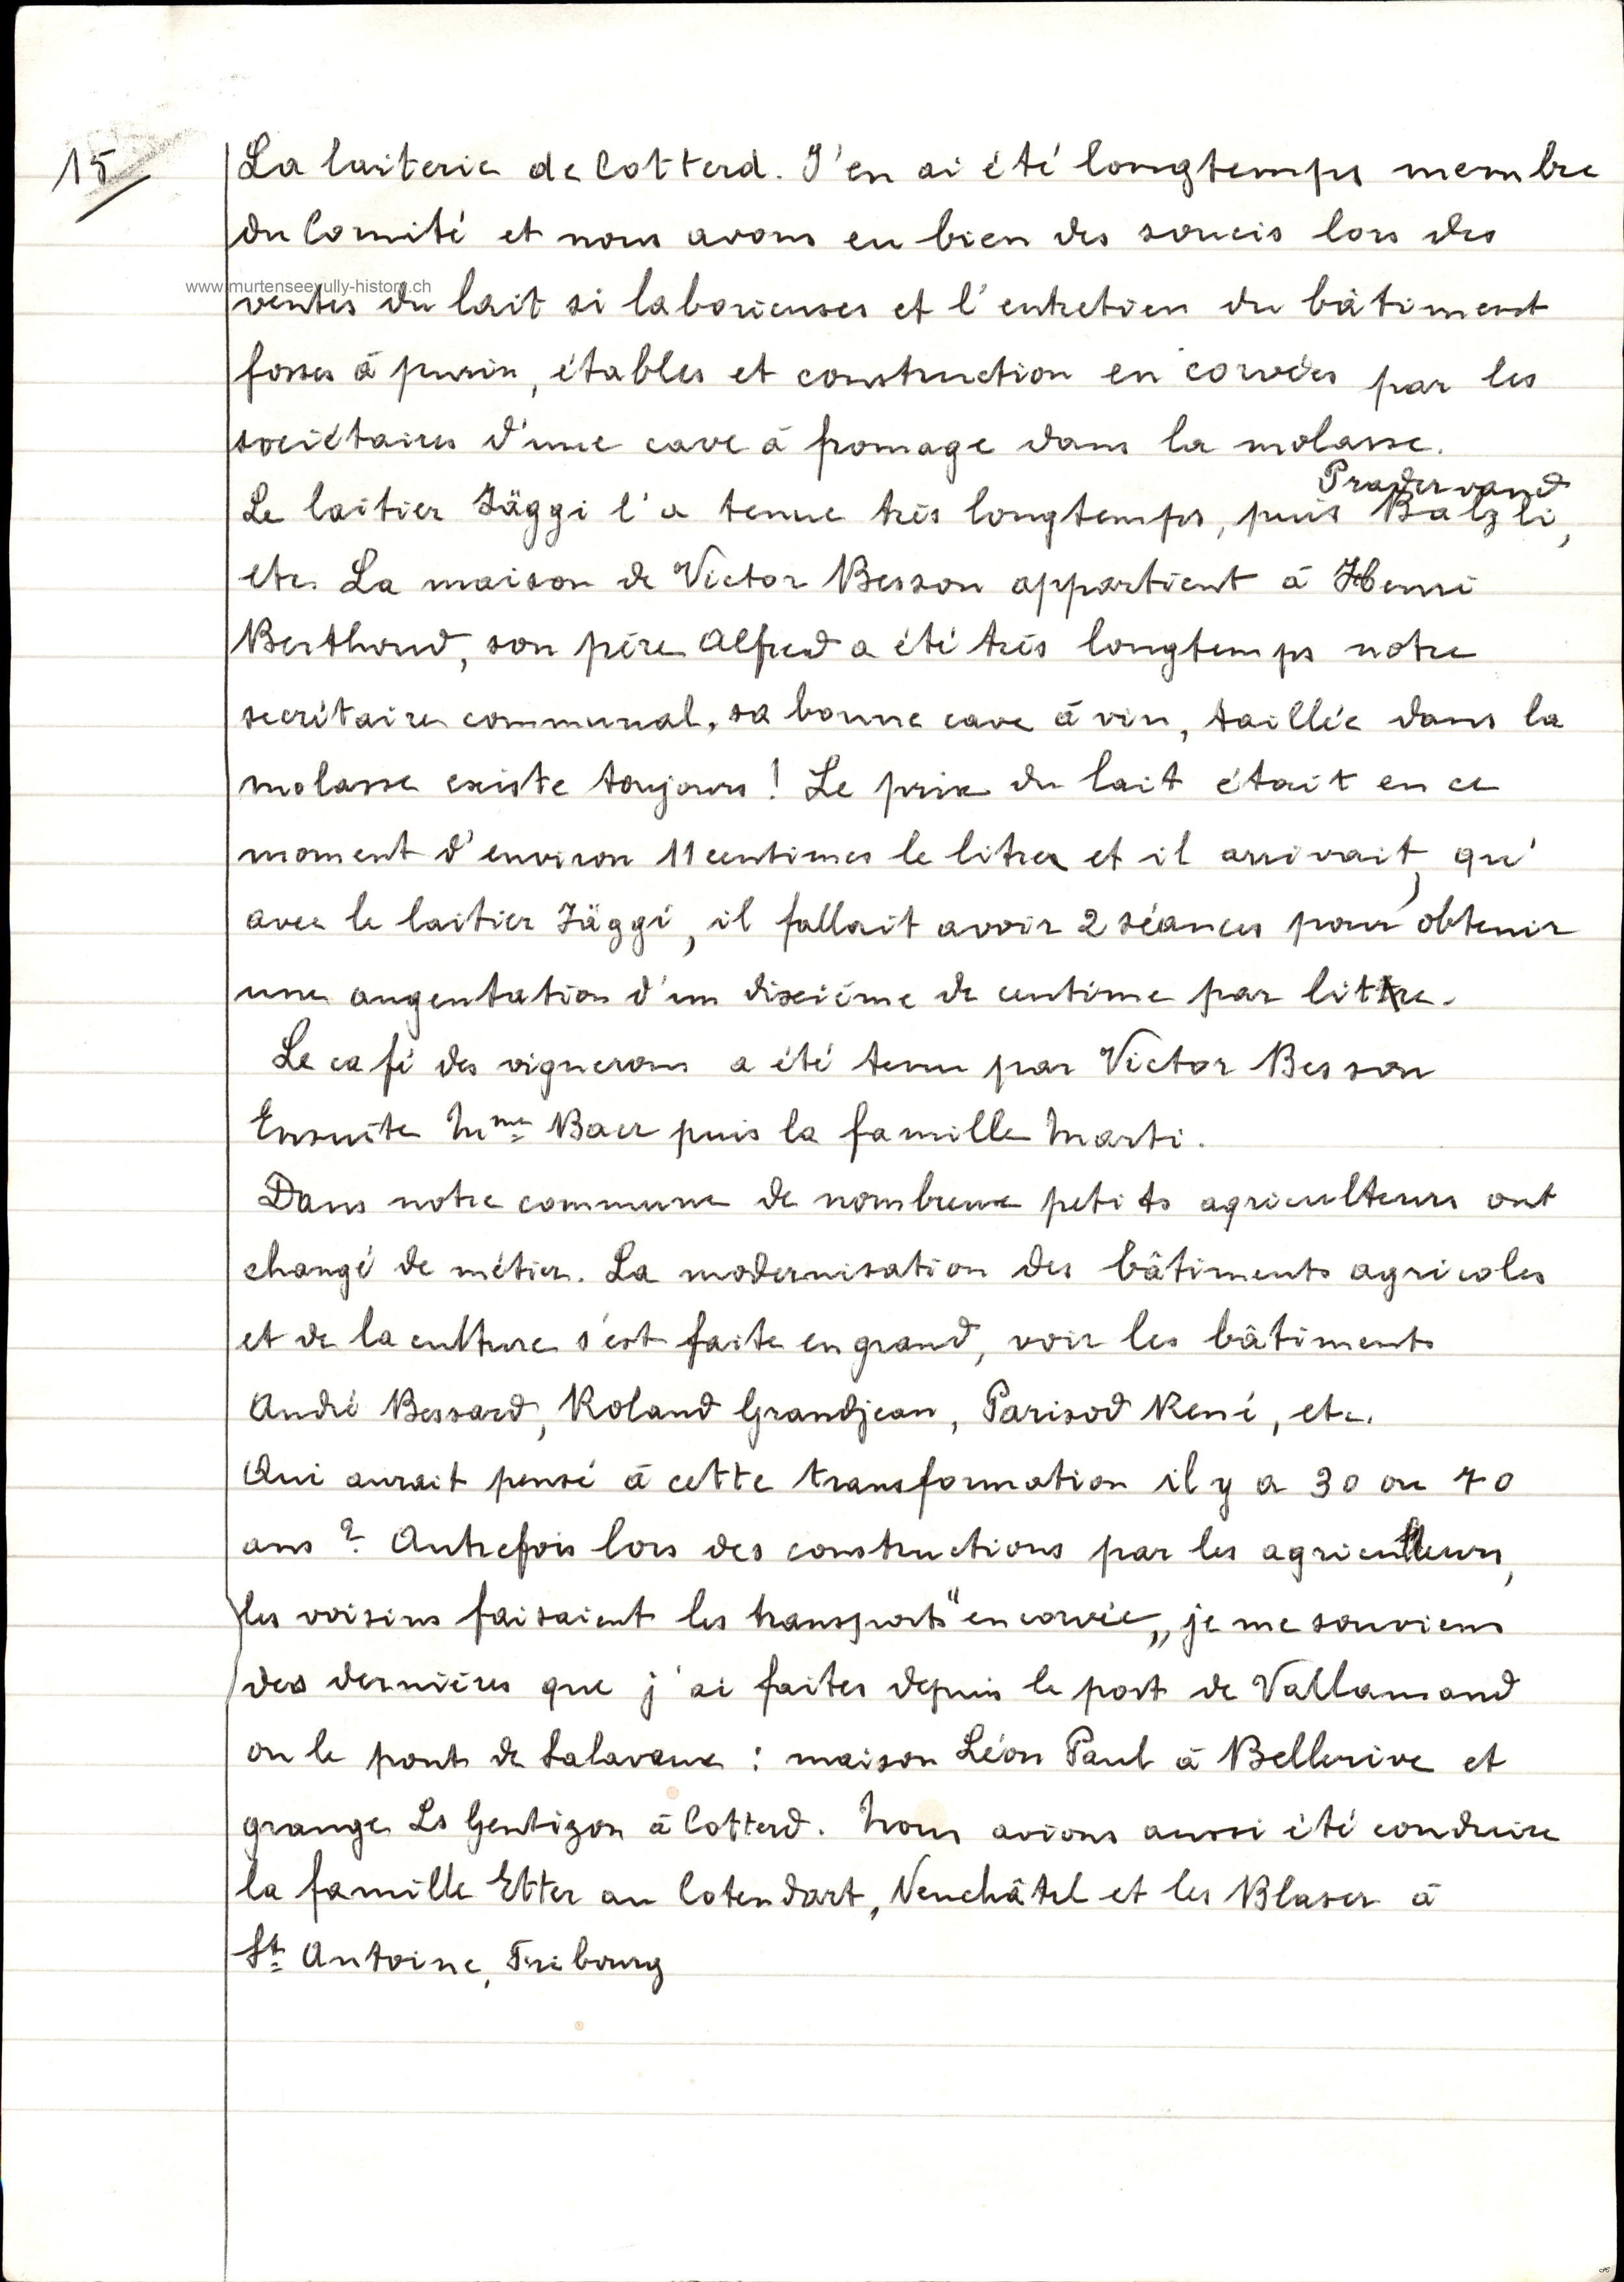 15
La laiterie de Cotterd. J'en ai été longtemps membre
du Comité et nous avons eu bien des soucis lors des
www.murtenseevully-history.ch
ventes du lait si laborieuses et l'entretien du bâtiment
fosses à purin, étables et construction en corvées par les
sociétaires d'une cave à fromage dans la molasse.
Pradervand
Le laitier Jäggi l'a tenue très longtemps, puis Balzli,
etc. La maison de Victor Besson appartient à Henri
Berthoud, son père Alfred a été très longtemps notre
secrétaire communal, sa bonne cave à vin, taillée dans la
molasse existe toujours! Le prix du lait était en ce
moment d'environ 11 centimes le litre et il arrivait, qu'
avec le laitier Jäggi, il fallait avoir 2 séances pour obtenir
une augentation d'un dixième de centime par litre.
Le café des vignerons a été tenu par Victor Besson
Ensuite Mme Baer puis la famille Marti.
Dans notre commune de nombreux petits agriculteurs ont
changé de métier. La modernisation des bâtiments agricoles
et de la culture s'est faite en grand, voir les bâtiments
André Bessard, Roland Grandjean, Parisod René, etc.
Qui aurait pensé à cette transformation il y a 30 ou 40
ans? Autrefois lors des constructions par les agriculteurs,
les voisins faisaient les transports "en corvée„ je me souviens
des dernières que j'ai faites depuis le port de Vallamand
ou le pont de Salavaux : maison Léon Paul à Bellerive et
grange Ls Gentizon à Cotterd. Nous avions aussi été conduire
la famille Etter au Cotendart, Neuchâtel et les Blaser à
St Antoine, Fribourg